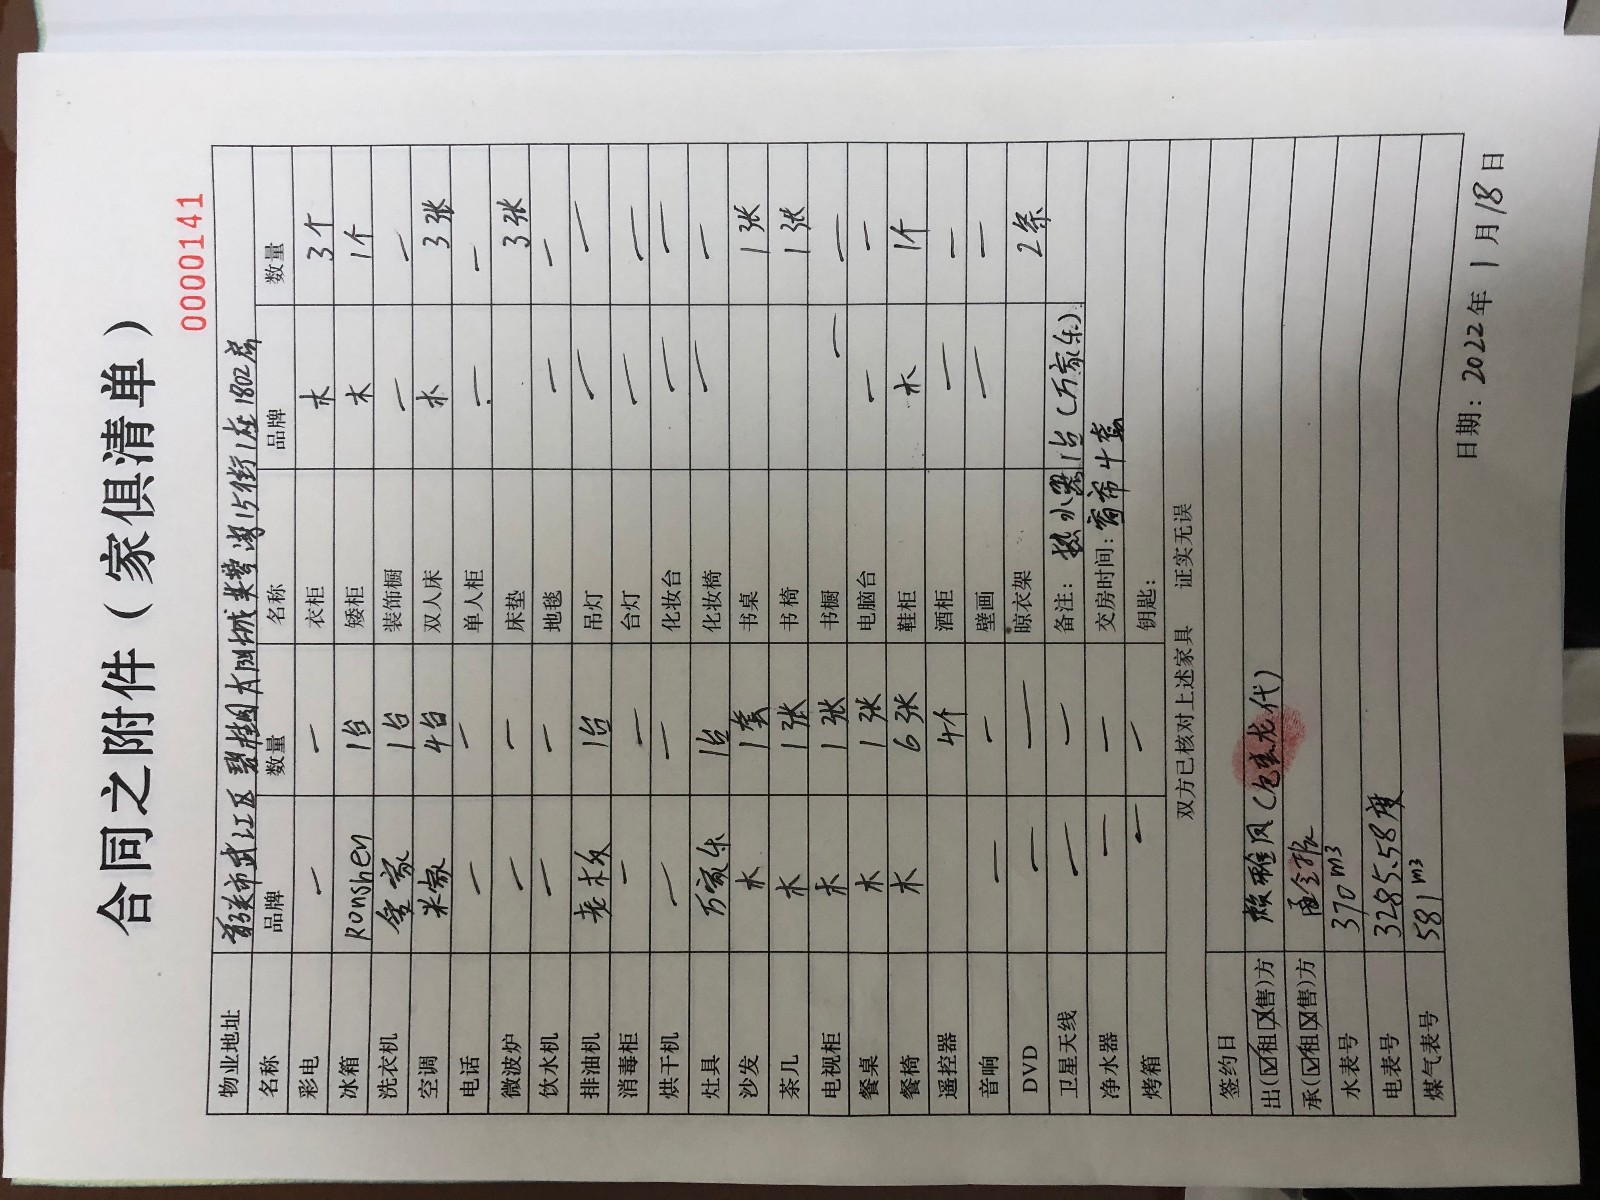 合同之附件（家俱清单）
0000141
物业地址 韶关市武江区碧桂园太阳城 湾15街1座1802房
名称 品牌 数量 名称 品牌 数量
彩电 — — 衣柜 木 3个
冰箱 Ronshen 1台 矮柜 木 1个
洗衣机 1台 装饰橱 — —
空调 4台 双人床 木 3张
电话 — — 单人柜 — —
微波炉 — — 床垫 3张
饮水机 — — 地毯 — —
排油机 老板 1台 吊灯 — —
消毒柜 — — 台灯 — —
烘干机 — — 化妆台 — —
灶具 万家乐 1台 化妆椅 — —
沙发 木 1套 书桌 1张
茶几 木 1张 书椅 1张
电视柜 木 1张 书橱 — —
餐桌 木 1张 电脑台 — —
餐椅 木 6张 鞋柜 木 1个
遥控器 4个 酒柜 — —
音响 — — 壁画 — —
DVD — — 晾衣架 2条
卫星天线 — — 备注：热水器1台（万家乐）.
净水器 — — 交房时间：窗帘4套
烤箱 — — 钥匙：
双方已核对上述家具 证实无误
签约日
出(☑租☒售)方 赖雅风（ 代）
承(☑租☒售)方
水表号 370m³
电表号 3285.58度
煤气表号 581m³
日期：2022年1月18日